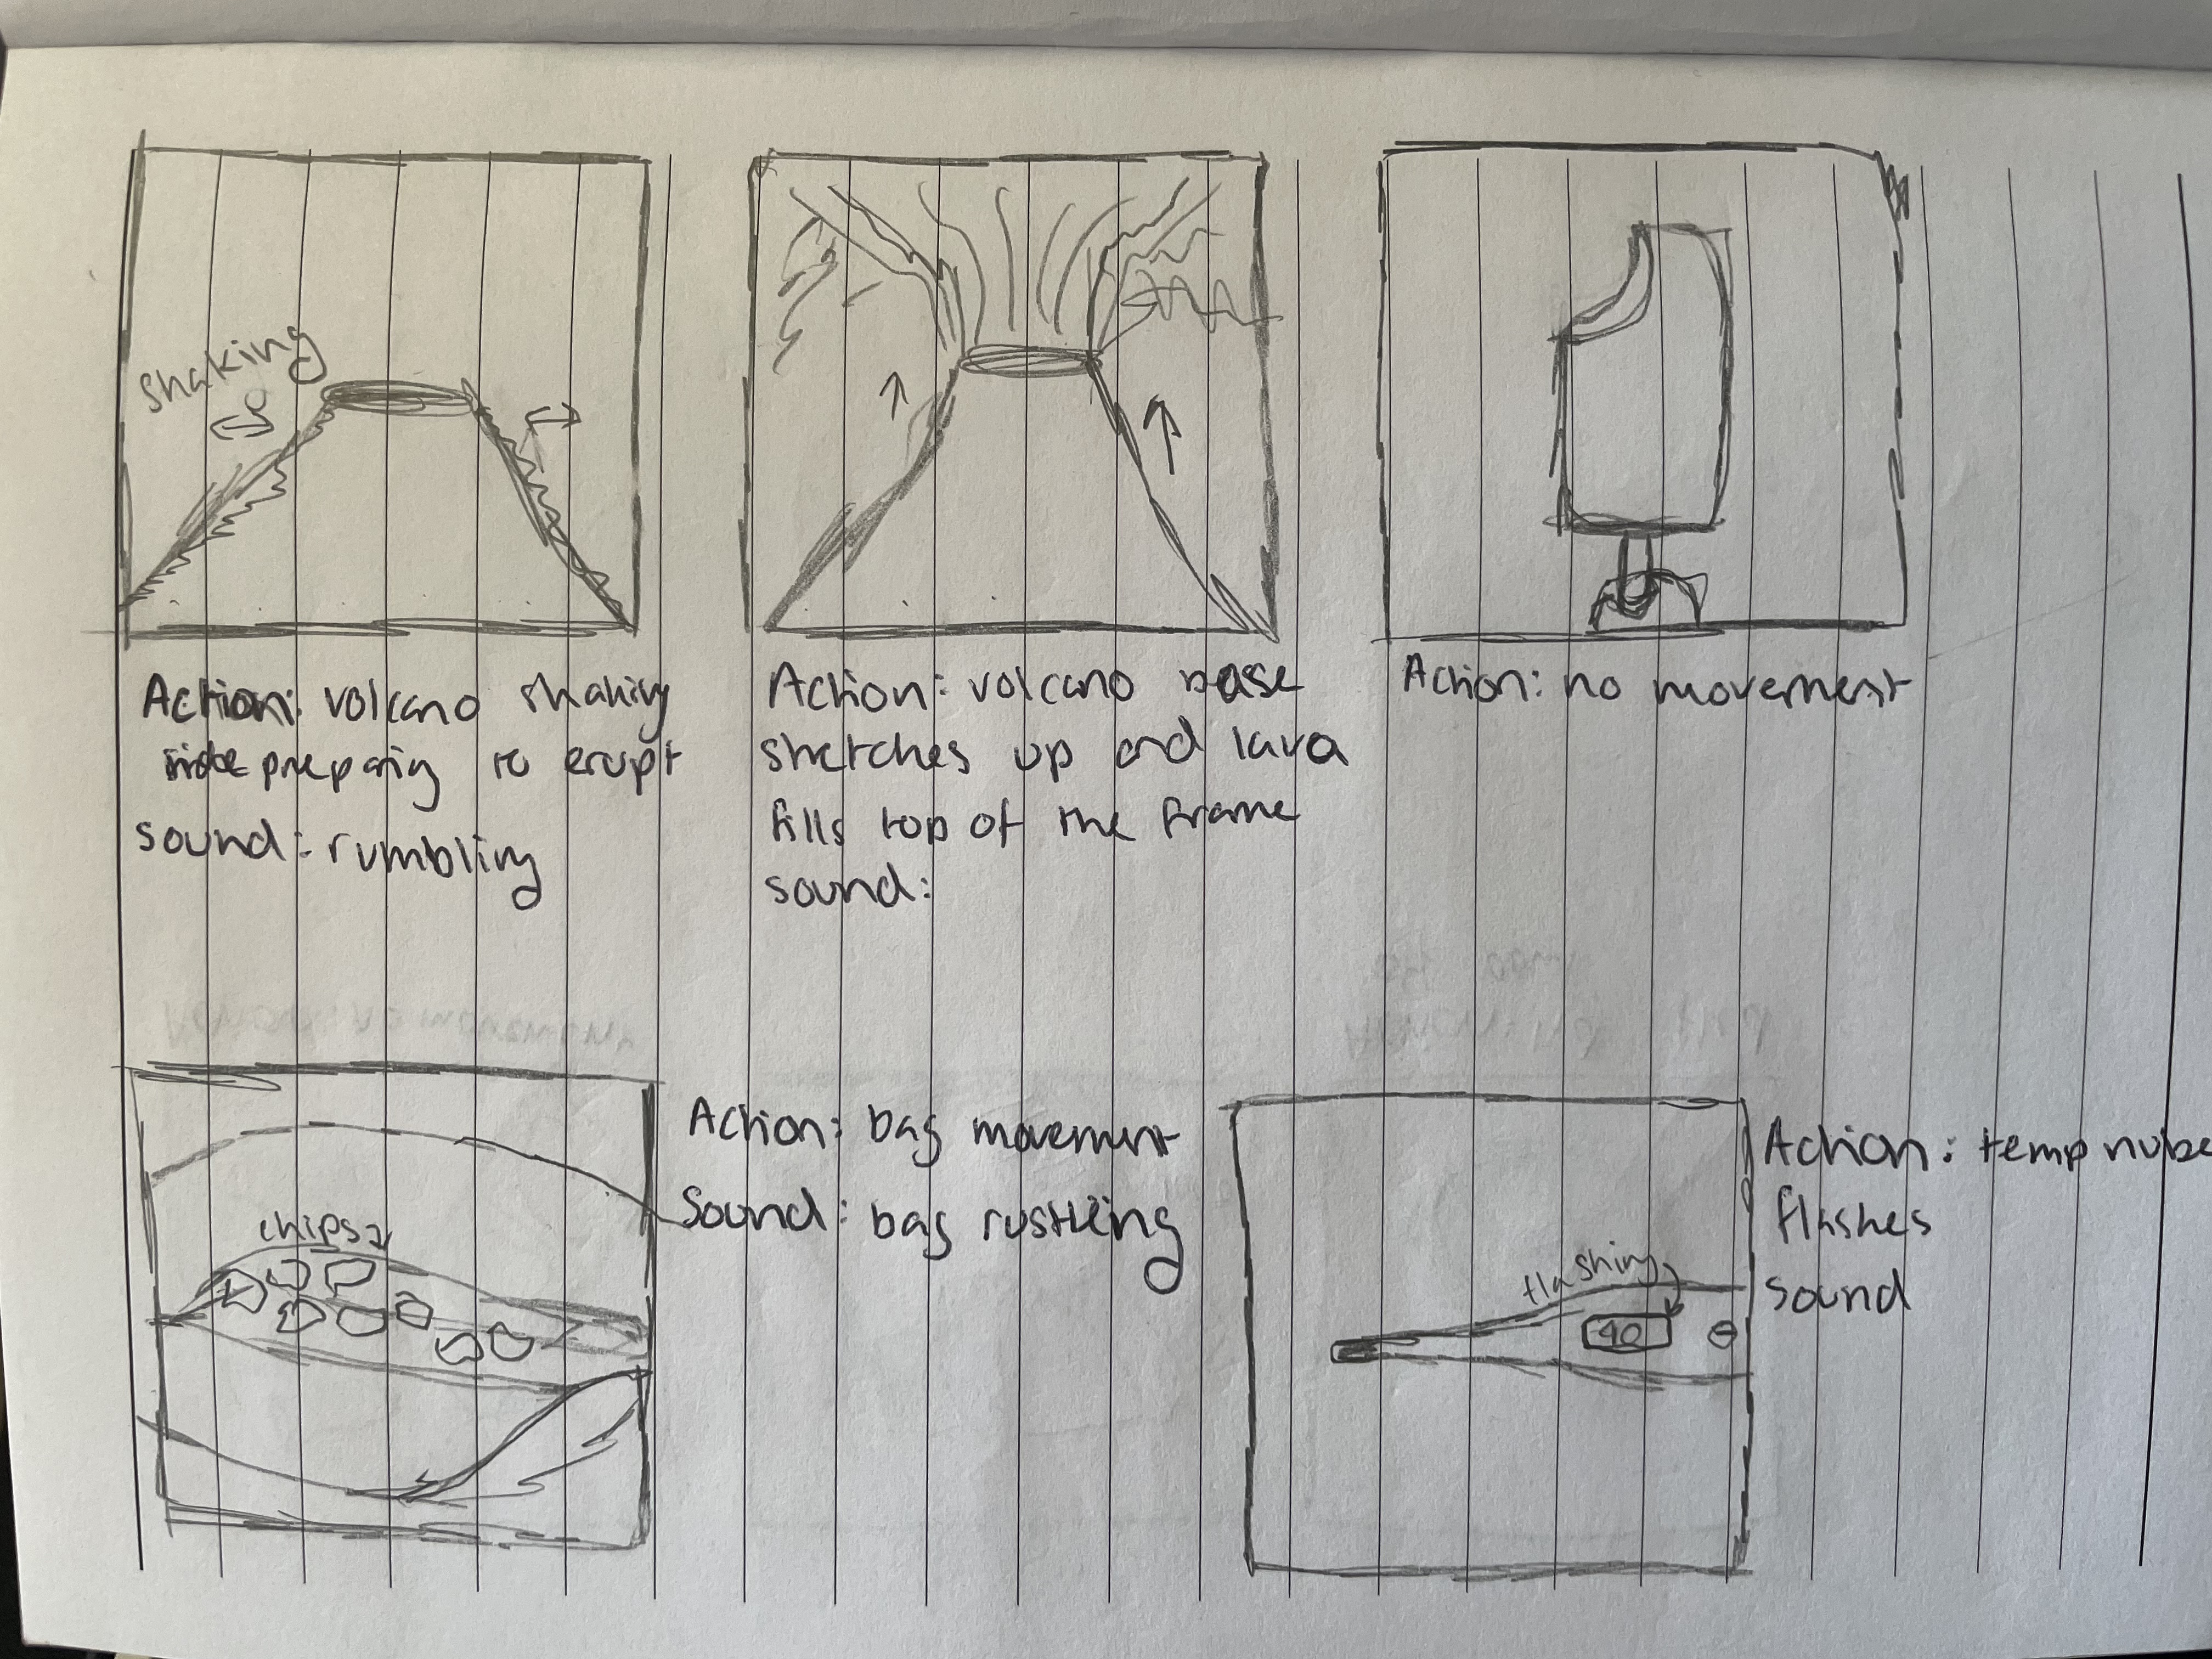 shaking
Action: volcano shaking
preparing to erupt
sound: rumbling
Action: volcano base
stretches up and lava
fills top of the frame
sound:
Action: no movement
chips
Action: bag movement
Sound: bag rustling
flashing
40
Action: temp
flashes
sound